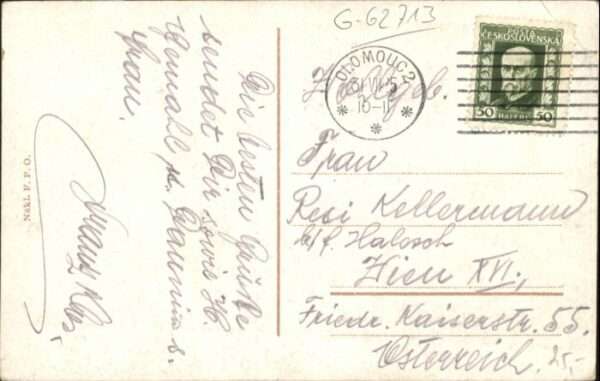 G-62713
POŠTA
ČESKOSLOVENSKÁ
50 HALÉŘŮ 50
OLOMOUC 2
Die besten Grüße
sendet Dir sowie H.
Gemahl
Frau.
Nákl. F. P. O.
Frau
Resi Kellermann
b/f. Halosch
Wien XVI,
Friedr. Kaiserstr. 55.
Österreich.
25,-